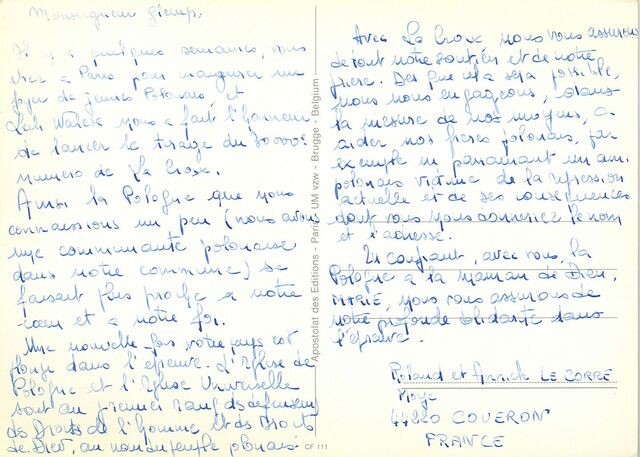 Monseigneur Glemp,
Il y a quelques semaines, vous
etiez a Paris pour inaugurer un
foyer de jeunes Polonais, et
Lech Walesa nous a fait l'honneur
de lancer le tirage du 30000e
numero de La Croix.
Ainsi la Pologne que nous
connaissions un peu (nous avions
une communauté polonaise
dans notre commune) se
faisait plus proche a notre
cœur et a notre foi.
Une nouvelle fois, votre pays est
plongé dans l'épreuve. L'Eglise de
Pologne et l'Eglise Universelle
sont au premier rang des défenseurs
des Droits de l'Homme et des Droits
de Dieu, au nom du peuple polonais.
Apostolat des Editions - Paris UM vzw - Brugge - Belgium
CF 111
Avec La Croix nous vous assurons
de tout notre soutien et de notre
prière. Des que cela sera possible,
nous nous engageons, dans
la mesure de nos moyens, a
aider nos freres polonais, par
exemple en parrainant un ami
polonais victime de la repression
actuelle et de ses consequences
dont vous nous donneriez le nom
et l'adresse.
En confiant, avec vous, la
Pologne a la maman de Dieu,
MARIE, nous vous assurons de
notre profonde solidarité dans
l'épreuve.
Roland et Annick LE CORRE
44220 COUERON
FRANCE